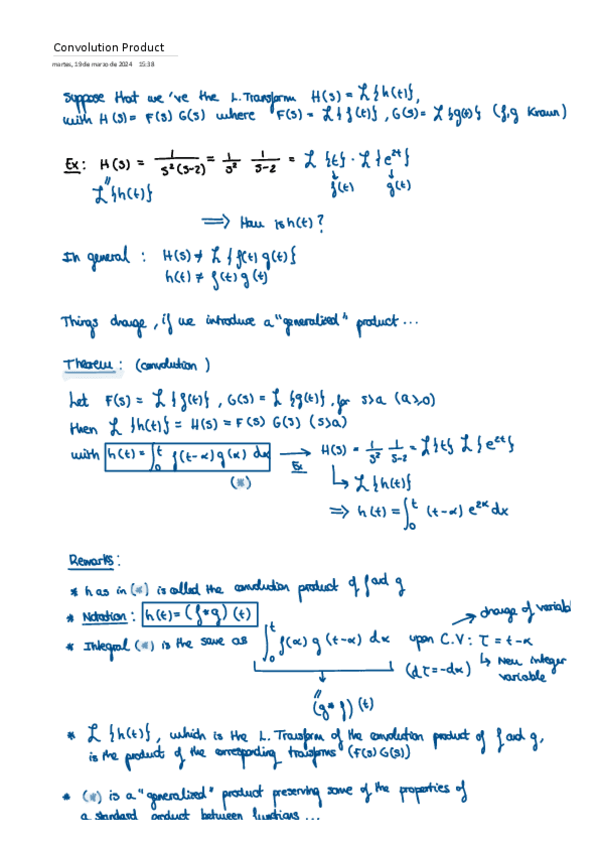 Convolution Product
martes, 19 de marzo de 2024 15:38
Suppose that we've the L. Transform H(s) = ℒ{h(t)},
with H(s) = F(s) G(s) where F(s) = ℒ{f(t)}, G(s) = ℒ{g(t)} (f,g known)
Ex: H(s) = 1/(s²(s-2)) = 1/s² 1/(s-2) = ℒ{t} · ℒ{e^{2t}}
ℒ{h(t)} f(t) g(t)
⟹ How is h(t)?
In general: H(s) ≠ ℒ{f(t) g(t)}
h(t) ≠ f(t) g(t)
Things change, if we introduce a "generalized" product...
Theorem: (convolution)
Let F(s) = ℒ{f(t)}, G(s) = ℒ{g(t)}, for s>a (a≥0)
then ℒ{h(t)} = H(s) = F(s) G(s) (s>a)
with h(t) = ∫₀ᵗ f(t-α) g(α) dα → Ex H(s) = 1/s² 1/(s-2) = ℒ{t} ℒ{e^{2t}}
(*) ↳ ℒ{h(t)}
⟹ h(t) = ∫₀ᵗ (t-α) e^{2α} dα
Remarks:
* h as in (*) is called the convolution product of f and g
* Notation: h(t) = (f*g)(t)
→ change of variabl
* Integral (*) is the same as ∫₀ᵗ f(α) g(t-α) dα upon C.V: τ = t-α
(dτ = -dα) ↳ New integer variable
(g*f)(t)
* ℒ{h(t)}, which is the L. Transform of the convolution product of f and g,
is the product of the corresponding transforms (F(s) G(s))
* (*) is a "generalized" product preserving some of the properties of
a standard product between functions...